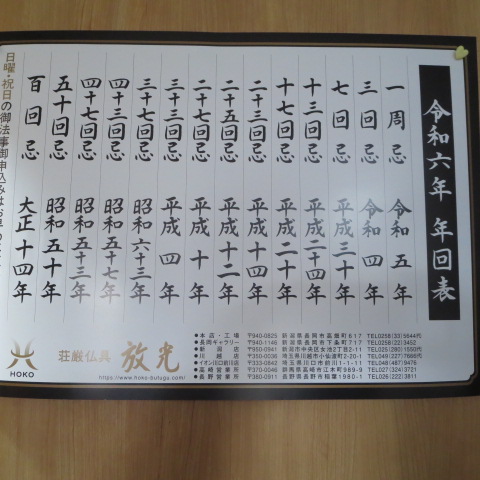 令和六年 年回表
一周忌 令和五年
三回忌 令和四年
七回忌 平成三十年
十三回忌 平成二十四年
十七回忌 平成二十年
二十三回忌 平成十四年
二十五回忌 平成十二年
二十七回忌 平成十年
三十三回忌 平成四年
三十七回忌 昭和六十三年
四十三回忌 昭和五十七年
四十七回忌 昭和五十三年
五十回忌 昭和五十年
百回忌 大正十四年
日曜・祝日の御法事御申込みはお早め
HOKO
荘厳仏具 放光
https://www.hoko-butugu.com/
●本店・工場 〒940-0825 新潟県長岡市高畑町617 TEL0258(33)5644
●長岡ギャラリー 〒940-1146 新潟県長岡市下条町717 TEL0258(22)3452
●新潟店 〒950-0941 新潟市中央区女池2丁目2-11 TEL025(280)1550
●川越店 〒350-0036 埼玉県川越市小仙波町2-20-1 TEL049(227)7666
●イオン川口前川店 〒333-0842 埼玉県川口市前川1-1-11 TEL048(487)9476
●高崎営業所 〒370-0046 群馬県高崎市江木町989-9 TEL027(324)3721
●長野営業所 〒380-0911 長野県長野市稲葉1980-1 TEL026(222)3811